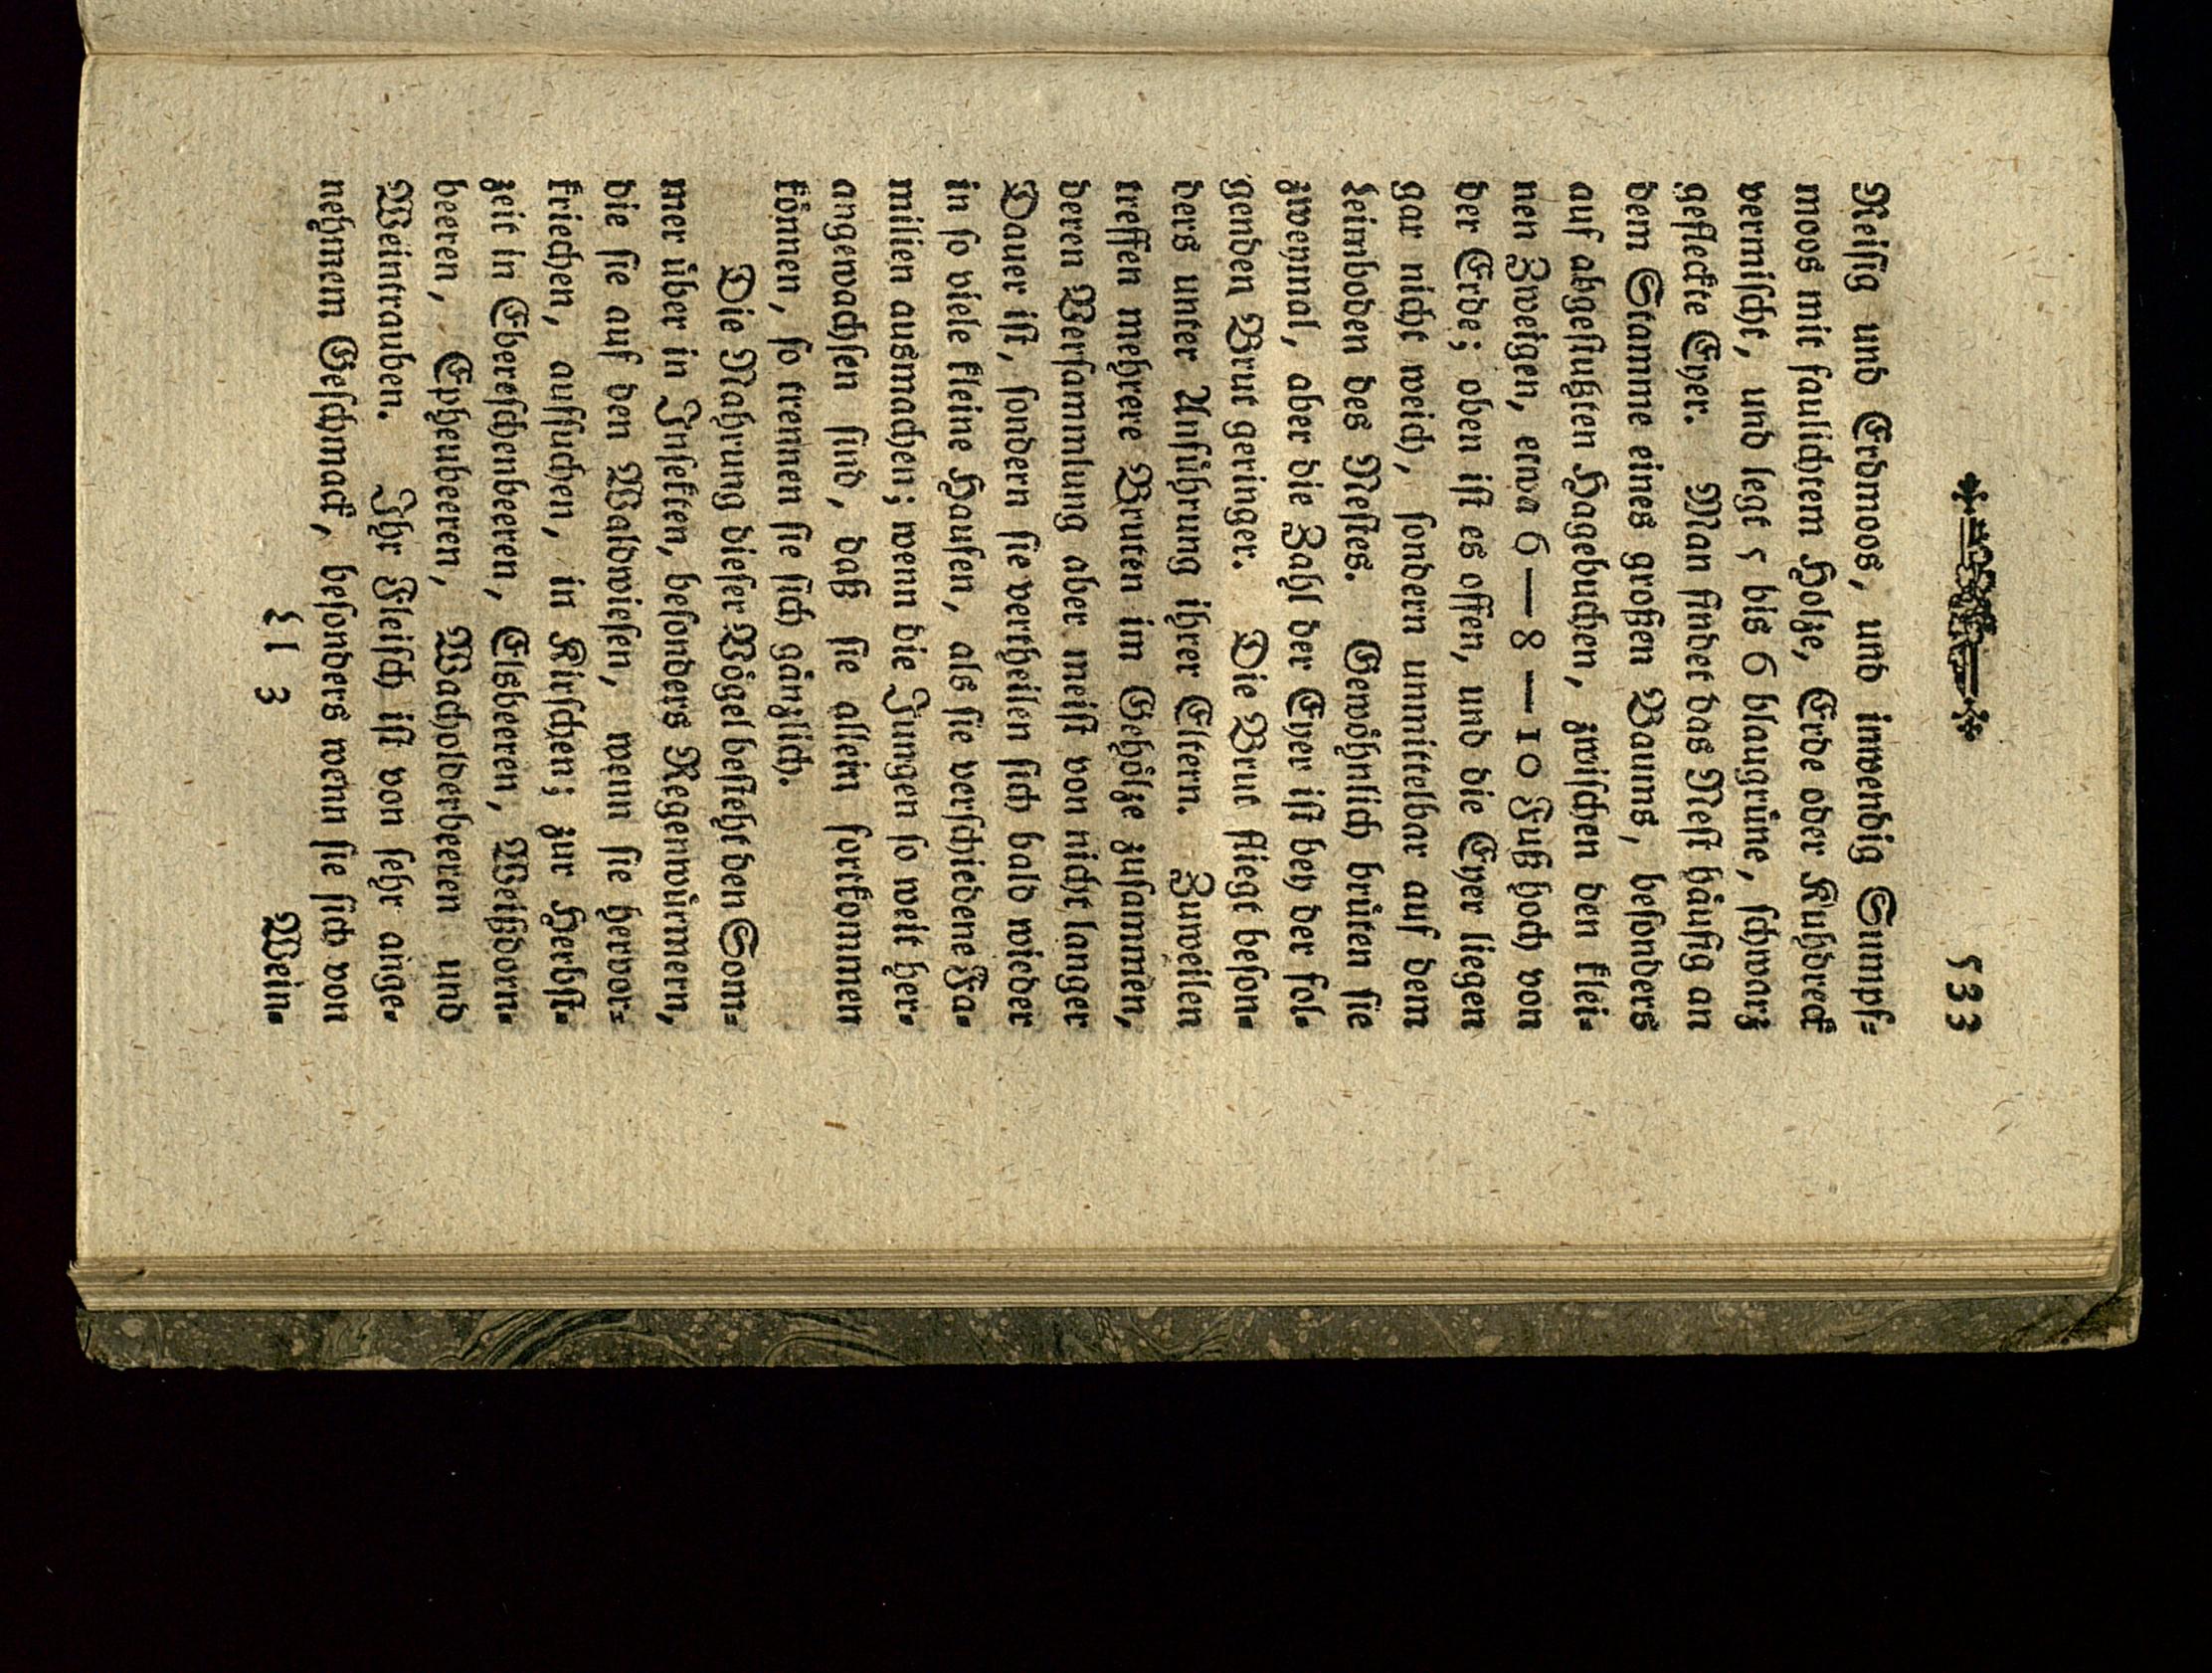 533
Reisig und Erdmoos, und inwendig Sumpf-
moos mit faulichtem Holze, Erde oder Kuhdreck
vermischt, und legt 5 bis 6 blaugrüne, schwarz
gefleckte Eyer. Man findet das Nest häufig an
dem Stamme eines großen Baums, besonders
auf abgestußten Hagebuchen, zwischen den klei-
nen Zweigen, etwa 6 — 8 — 10 Fuß hoch von
der Erde; oben ist es offen, und die Eyer liegen
gar nicht weich, sondern unmittelbar auf dem
Leimboden des Nestes. Gewöhnlich brüten sie
zweymal, aber die Zahl der Eyer ist bey der fol-
genden Brut geringer. Die Brut fliegt beson-
ders unter Anführung ihrer Eltern. Zuweilen
treffen mehrere Bruten im Gehölze zusammen,
deren Versammlung aber meist von nicht langer
Dauer ist, sondern sie vertheilen sich bald wieder
in so viele kleine Haufen, als sie verschiedene Fa-
milien ausmachen; wenn die Jungen so weit her-
angewachsen sind, daß sie allein fortkommen
können, so trennen sie sich gänzlich.
Die Nahrung dieser Vögel besteht den Som-
mer über in Insekten, besonders Regenwürmern,
die sie auf den Waldwiesen, wenn sie hervor-
kriechen, aufsuchen, in Kirschen; zur Herbst-
zeit in Ebereschenbeeren, Elsbeeren, Weißdorn-
beeren, Epheubeeren, Wacholderbeeren und
Weintrauben. Ihr Fleisch ist von sehr ange-
nehmem Geschmack, besonders wenn sie sich von
Ll 3
Wein-